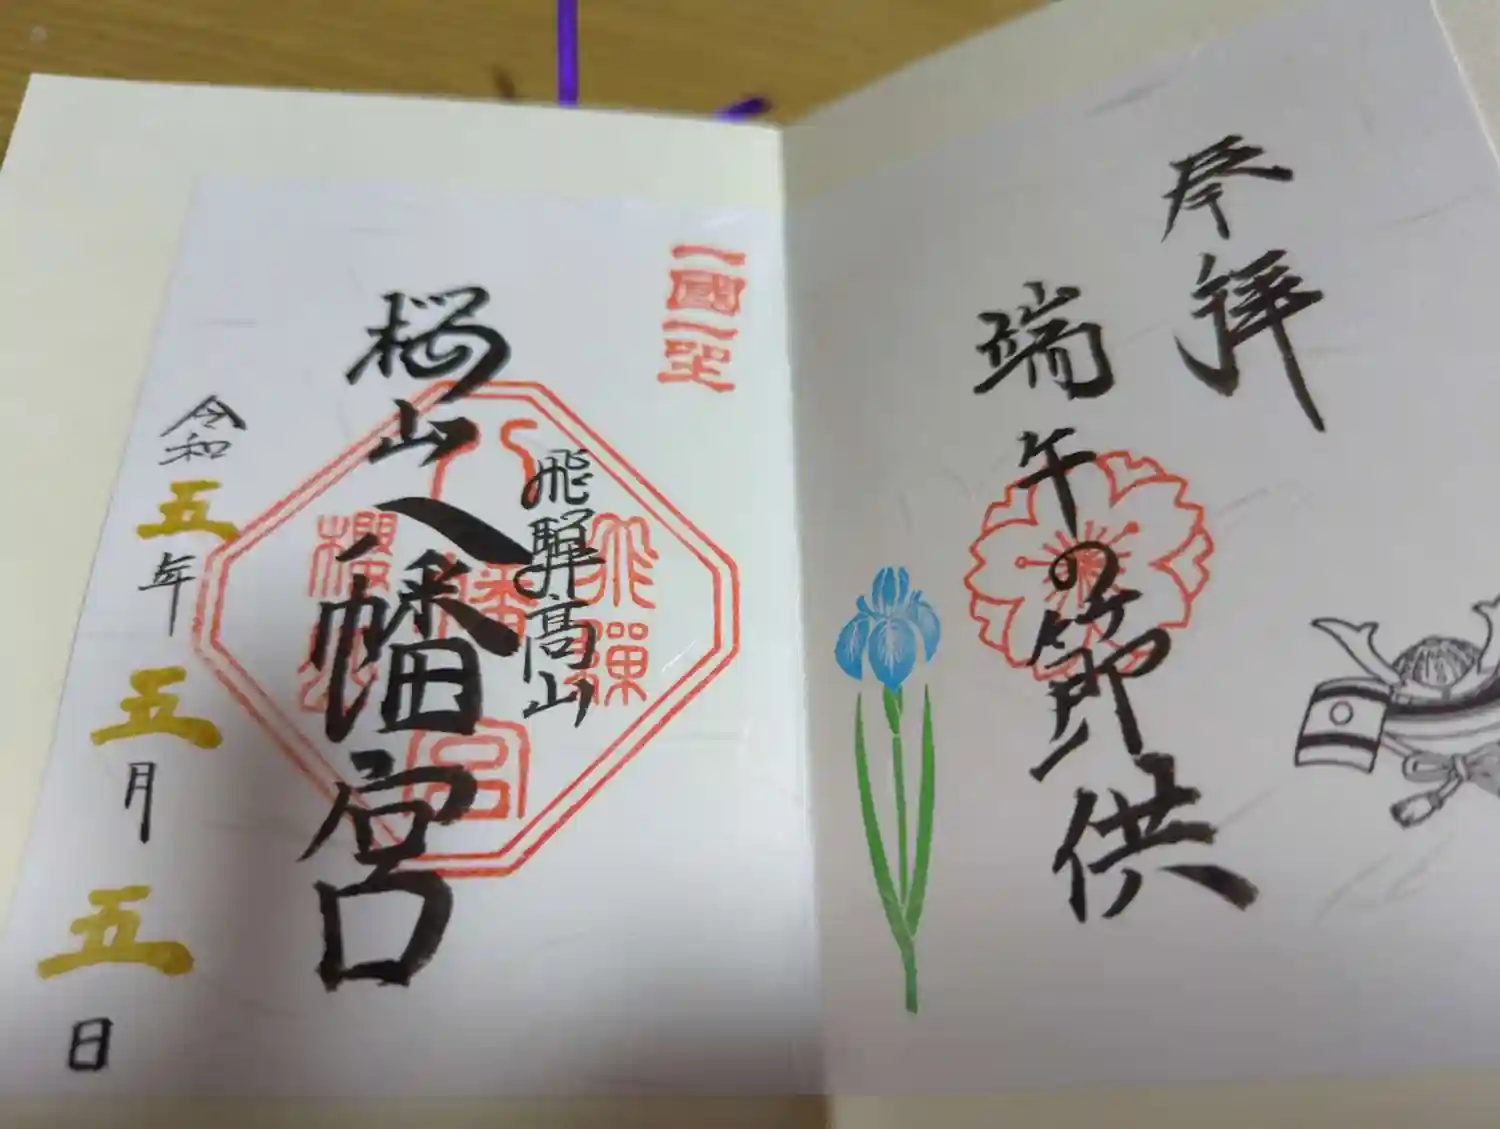 奉拝
端午の節供
一國一社
飛騨高山
桜山八幡宮
飛彈
八幡宮
櫻山
令和五年五月五日